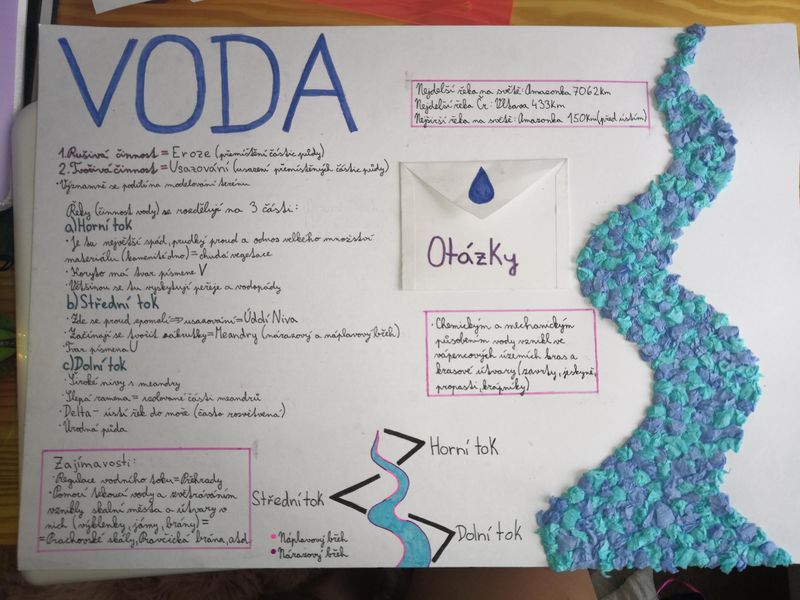 VODA
1. Rušivá činnost = Eroze (přemístění částic půdy)
2. Tvořivá činnost = Usazování (usazení přemístěných částic půdy)
• Významně se podílí na modelování terénu
Řeky (činnost vody) se rozdělují na 3 části:
a) Horní tok
• Je tu největší spád, prudký proud a odnos velkého množství
materiálu (kamenité dno) = chudá vegetace
• Koryto má tvar písmene V
• Většinou se tu vyskytují peřeje a vodopády
b) Střední tok
• Zde se proud zpomalí => usazování = Údolí Niva
• Začínají se tvořit zákrutky = Meandry (nárazový a náplavový břeh)
• Tvar písmena U
c) Dolní tok
• Široké nivy s meandry
• Slepá ramena = izolované části meandrů
• Delta - ústí řek do moře (často rozvětvená)
• Úrodná půda
Zajímavosti:
• Regulace vodního toku = Přehrady
• Pomocí tekoucí vody a zvětráváním
vznikly skalní města a útvary v
nich (výklenky, jámy, brány) =
= Prachovské skály, Pravčická brána, atd.
Nejdelší řeka na světě: Amazonka 7062km
Nejdelší řeka Čr: Vltava 433km
Nejširší řeka na světě: Amazonka 150km (před ústím)
Otázky
• Chemickým a mechanickým
působením vody vznikl ve
vápencových územích kras a
krasové útvary (závrty, jeskyně,
propasti, krápníky)
Horní tok
Střední tok
Dolní tok
• Náplavový břeh
• Nárazový břeh